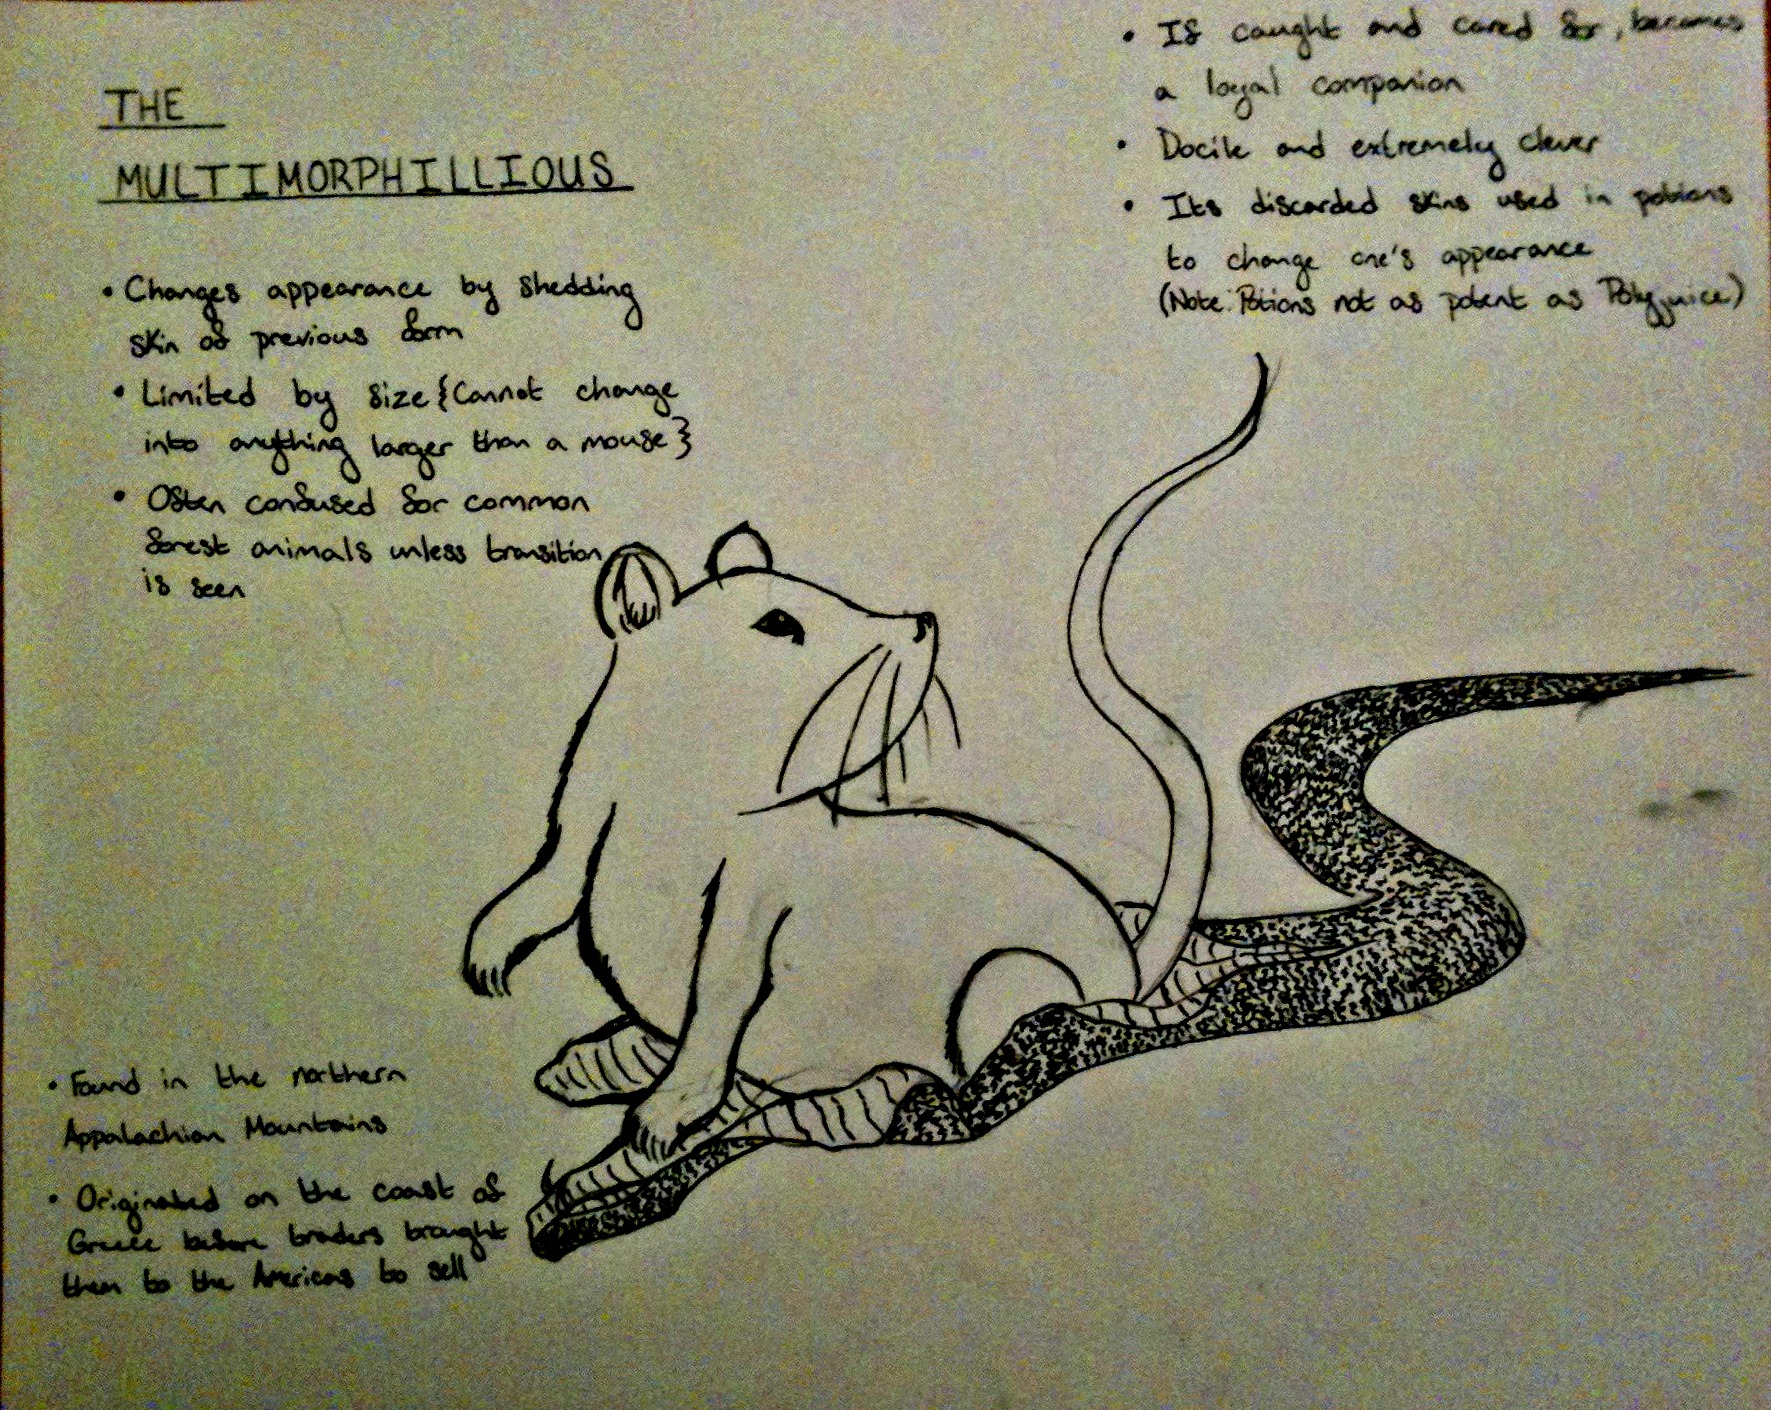 THE
MULTIMORPHILLIOUS
• Changes appearance by shedding
skin of previous form
• Limited by size {Cannot change
into anything larger than a mouse}
• Often confused for common
forest animals unless transition
is seen
• If caught and cared for, becomes
a loyal companion
• Docile and extremely clever
• Its discarded skins used in potions
to change one's appearance
(Note: Potions not as potent as Polyjuice)
• Found in the northern
Appalachian Mountains
• Originated on the coast of
Greece before traders brought
them to the Americas to sell